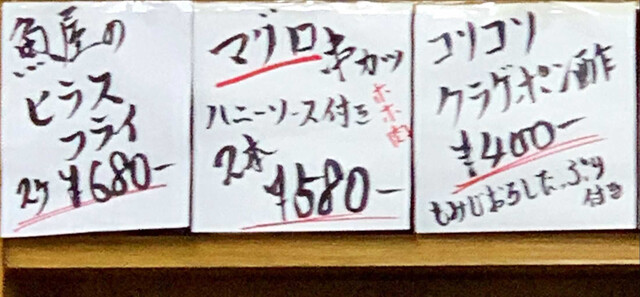 魚屋の
ヒラス
フライ
2ケ ¥680-
マグロ串カツ
ハニーソース付き
ホホ肉
2本
¥580-
コリコリ
クラゲポン酢
¥400-
もみじおろしたっぷり
付き